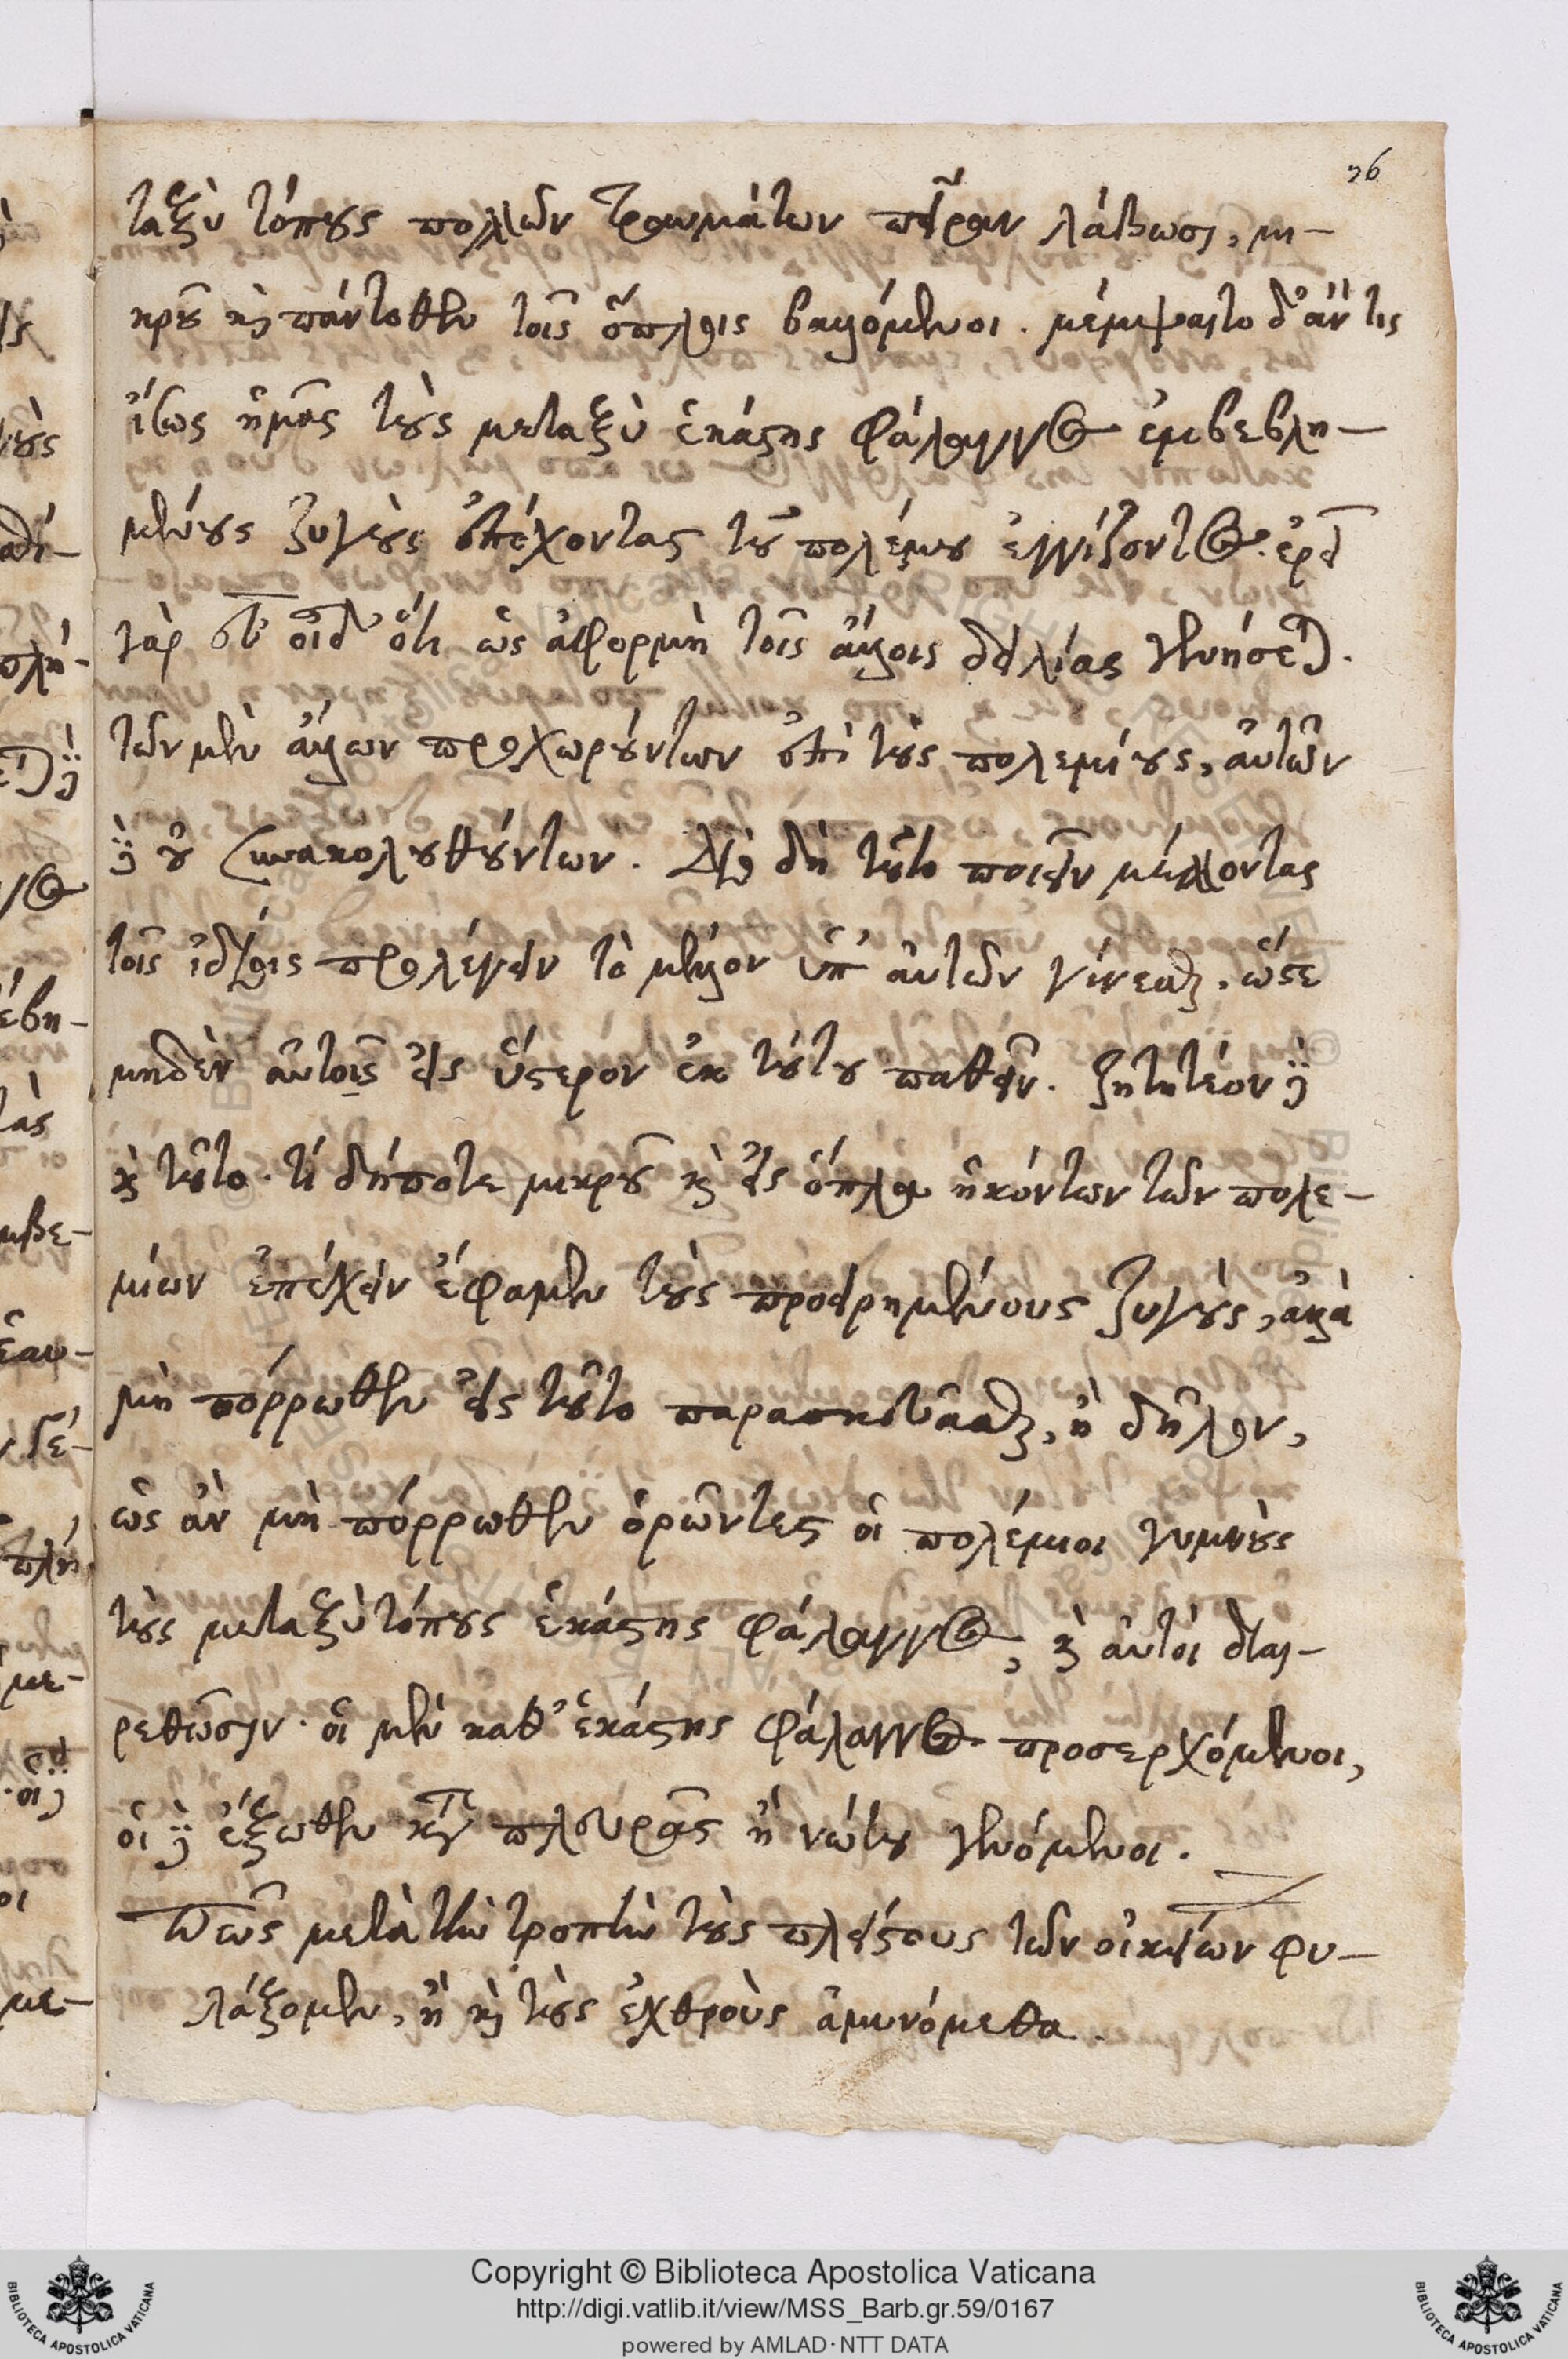 76
ταξὺ τόπους πολλῶν τρωμάτων πεῖραν λάβωσι, μι-
κροῦ καὶ πάντοθεν τοῖς ὅπλοις βαλλόμενοι. μέμψαιτο δ' ἄν τις
ἴσως ἡμᾶς τοὺς μεταξὺ ἑκάστης φάλαγγος ἐμβεβλη-
μένους ζυγοὺς ἐπέχοντας τοῦ πολέμου ἐγγίζοντος. ἐρεῖ
γὰρ εὖ οἶδ' ὅτι ὡς ἀφορμὴ τοῖς ἄλλοις δειλίας γενήσεται.
τῶν μὲν ἄλλων προχωρούντων ἐπὶ τοὺς πολεμίους, αὐτῶν
δὲ οὐ συνακολουθούντων. Διὸ δὴ τοῦτο ποιεῖν μέλλοντας
τοῖς ἰδίοις προλέγειν τὸ μέλλον ὑπ' αὐτῶν γίνεσθαι. ὥστε
μηδὲν αὐτοῖς εἰς ὕστερον ἐκ τούτου παθεῖν. ζητητέον δὲ
καὶ τοῦτο. τί δήποτε μικροῦ καὶ εἰς ὅπλα ἡκόντων τῶν πολε-
μίων ἐπέχειν ἔφαμεν τοὺς προειρημένους ζυγούς, ἀλλὰ
μὴ πόρρωθεν εἰς τοῦτο παρασκευᾶσθαι, ἢ δῆλον,
ὡς ἂν μὴ πόρρωθεν ὁρῶντες οἱ πολέμιοι γυμνοὺς
τοὺς μεταξὺ τόπους ἑκάστης φάλαγγος, καὶ αὐτοὶ διαι-
ρεθῶσιν. οἱ μὲν καθ' ἑκάστης φάλαγγος προσερχόμενοι,
οἱ δὲ ἔξωθεν κατὰ πλευρᾶς ἢ νώτου γενόμενοι.
Πῶς μετὰ τὴν τροπὴν τοὺς πλείστους τῶν οἰκείων φυ-
λάξομεν, ἢ καὶ τοὺς ἐχθροὺς ἀμυνόμεθα.
Copyright © Biblioteca Apostolica Vaticana
http://digi.vatlib.it/view/MSS_Barb.gr.59/0167
powered by AMLAD·NTT DATA
BIBLIOTECA APOSTOLICA VATICANA
BIBLIOTECA APOSTOLICA VATICANA